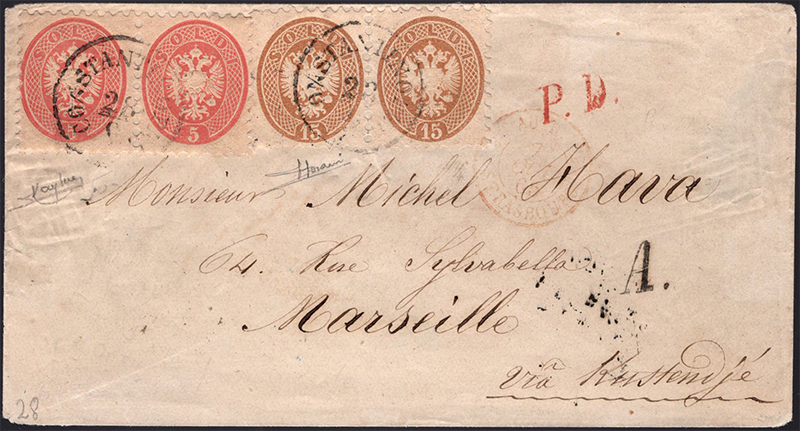 SOLDI SOLDI SOLDI SOLDI
5 15 15
CONSTANT
P. D.
Monsieur Michel Hava
64. Rue Sylvabella
A.
Marseille
via Kustendjé
28